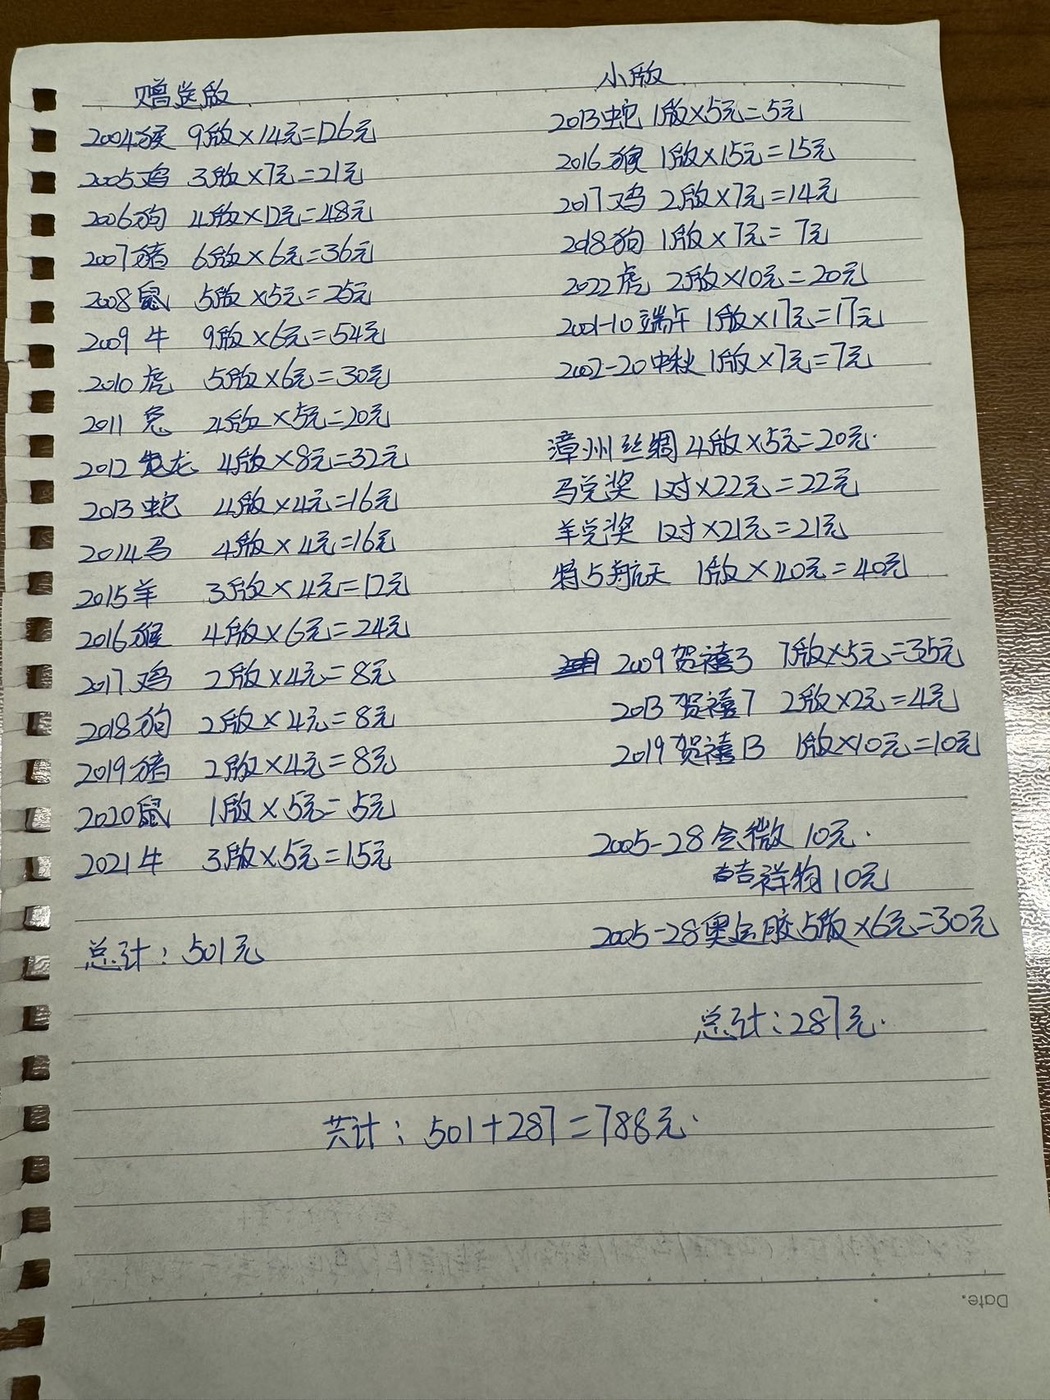 赠送版
2004猴 9版×14元=126元
2005鸡 3版×7元=21元
2006狗 4版×12元=48元
2007猪 6版×6元=36元
2008鼠 5版×5元=25元
2009牛 9版×6元=54元
2010虎 5版×6元=30元
2011兔 4版×5元=20元
2012龙 4版×8元=32元
2013蛇 4版×4元=16元
2014马 4版×4元=16元
2015羊 3版×4元=12元
2016猴 4版×6元=24元
2017鸡 2版×4元=8元
2018狗 2版×4元=8元
2019猪 2版×4元=8元
2020鼠 1版×5元=5元
2021牛 3版×5元=15元
总计:501元
小版
2013蛇 1版×5元=5元
2016猴 1版×15元=15元
2017鸡 2版×7元=14元
2018狗 1版×7元=7元
2022虎 2版×10元=20元
2001-10端午 1版×17元=17元
2002-20中秋 1版×7元=7元
漳州丝绸 4版×5元=20元.
马兑奖 1对×22元=22元
羊兑奖 1对×21元=21元
特5航天 1版×40元=40元
2009贺禧3 7版×5元=35元
2013贺禧7 2版×2元=4元
2019贺禧13 1版×10元=10元
2005-28会徽 10元.
吉祥物10元
2005-28奥运胶5版×6元=30元
总计:287元.
共计:501+287=788元.
Date.